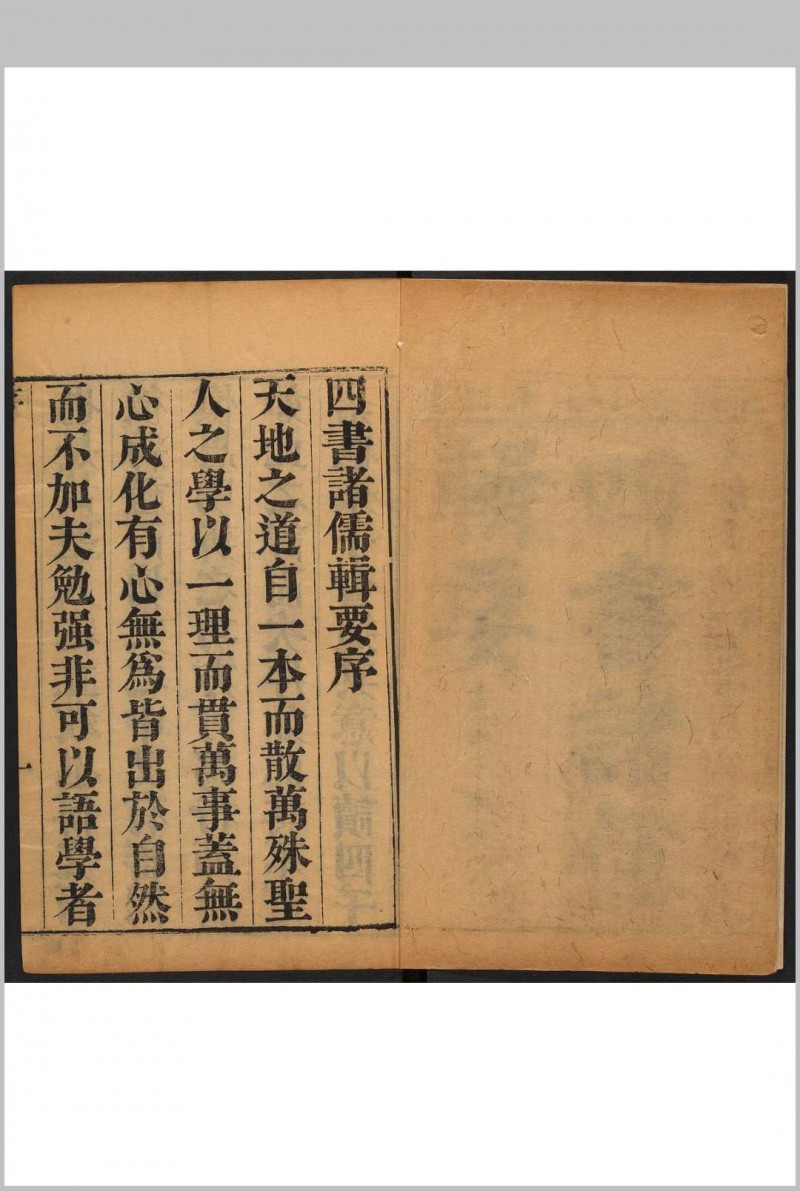 四書諸儒輯要序
天地之道自一本而散萬殊聖
人之學以一理而貫萬事蓋無
心成化有心無為皆出於自然
而不加夫勉强非可以語學者
序
一